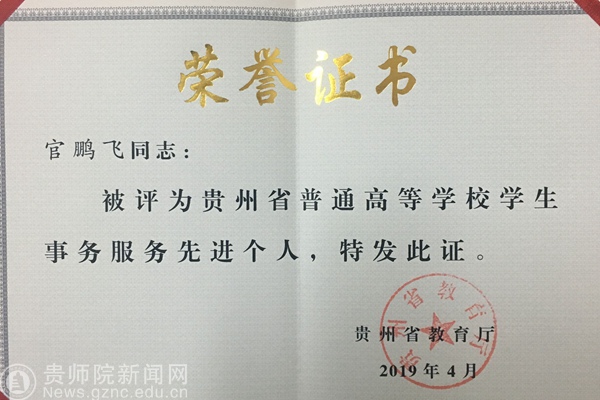 荣誉证书
官鹏飞同志：
被评为贵州省普通高等学校学生
事务服务先进个人，特发此证。
贵州省教育厅
贵州省教育厅
2019年4月
贵师院新闻网
News.gznc.edu.cn